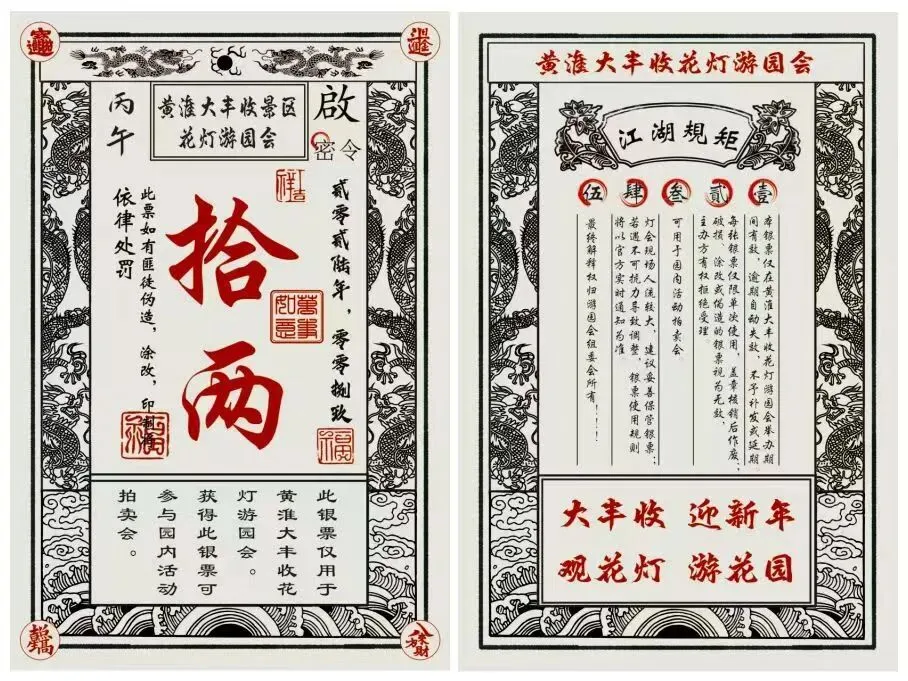 招财进宝
日进斗金
丙午
黄淮大丰收景区
花灯游园会
啟
密令
贰零贰陆年，零零捌玖
拾两
万事如意
福
此票如有匪徒伪造，涂改，印制者
依律处罚
此银票仅用于
黄淮大丰收花
灯游园会。
获得此银票可
参与园内活动
拍卖会。
八方来财
黄淮大丰收花灯游园会
江湖规矩
壹
本银票仅在黄淮大丰收花灯游园会举办期
间有效，逾期自动失效，不予补发或延期
贰
每张银票仅限单次使用，盖章核销后作废；
破损、涂改或伪造的银票视为无效，
主办方有权拒绝受理。
叁
可用于园内活动拍卖会
肆
灯会现场人流较大，建议妥善保管银票；
若遇不可抗力导致调整，银票使用规则
将以官方实时通知为准
伍
最终解释权归游园会组委会所有！！！
大丰收 迎新年
观花灯 游花园